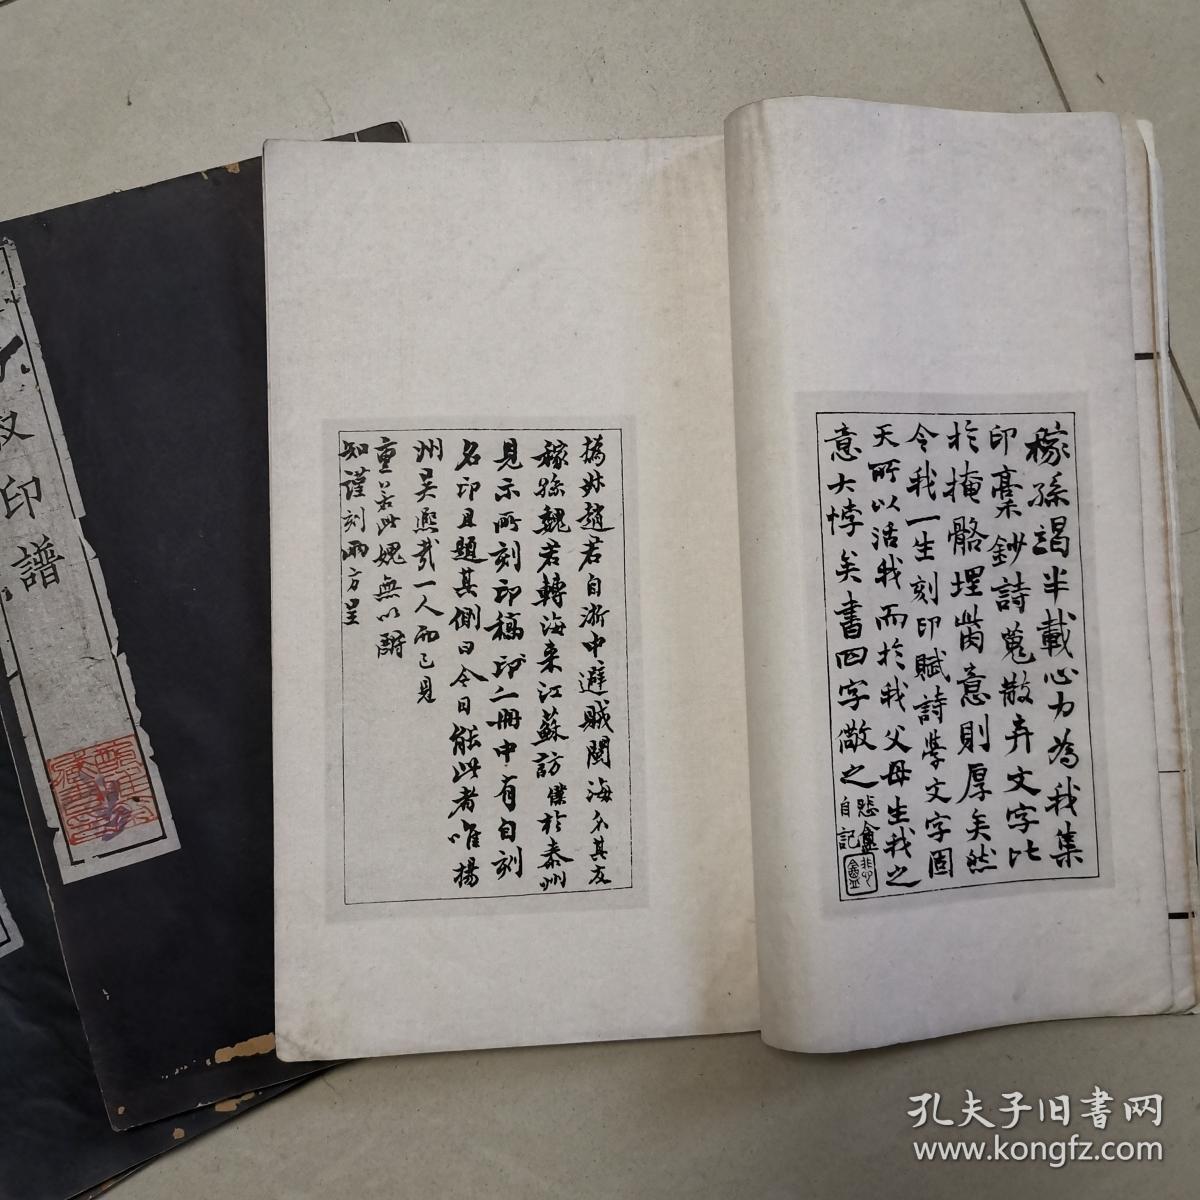 稼孫竭半載心力為我集
印稾鈔詩蒐散弃文字比
於掩骼埋胔意則厚矣然
令我一生刻印賦詩學文字固
天所以活我而於我父母生我之
意大悖矣書四字儆之
悲盦
自記
撝叔趙君自浙中避賊閩海介其友
稼孫魏君轉海来江蘇訪僕於泰州
見示所刻印稿印二冊中有自刻
名印且題其側曰今日能此者唯揚
州吴熙載一人而已見
重若此媿無以酧
知謹刻兩方呈
叔印譜
孔夫子旧书网
www.kongfz.com